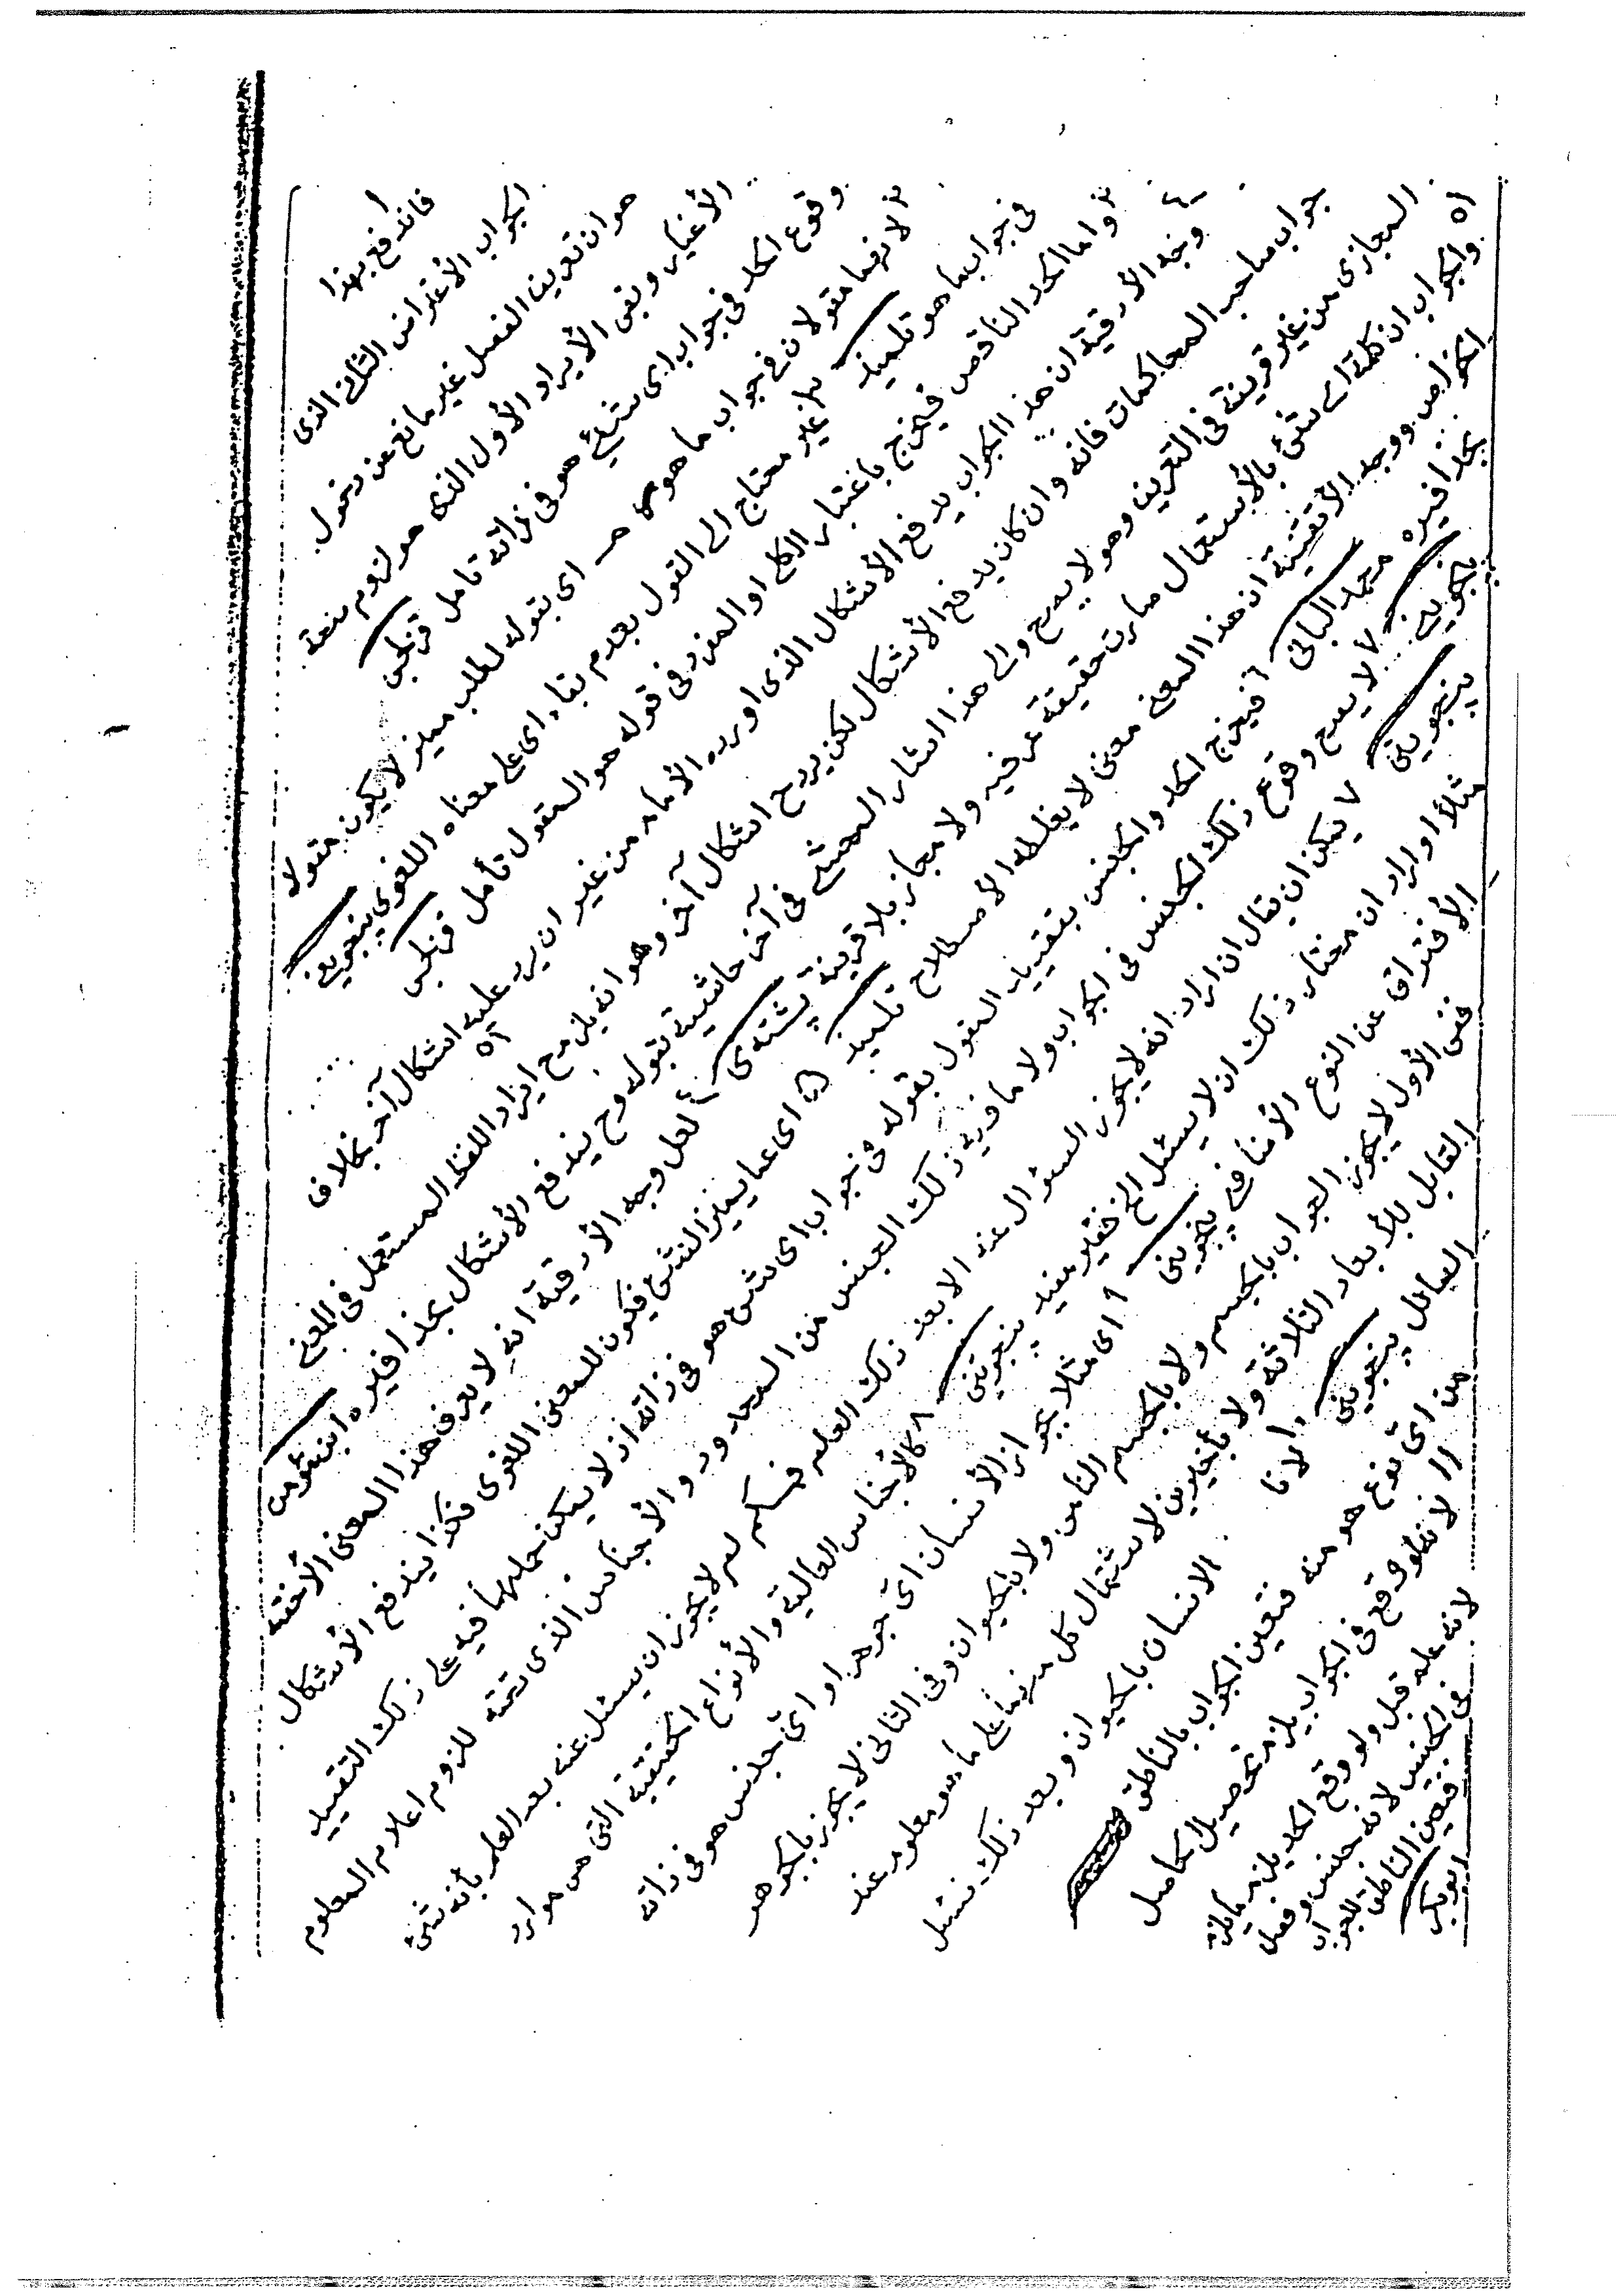 فاندفع بهذا
الجواب الأعتراض الثاني الذى
هو ان تعريف الفصل غير مانع عن دخول
الأغيار وبقى الأيراد الأول الذى هو لزوم
وقوع الحد فى جواب اى شئ هو فى ذاته تامل قزلجى
لانهما مقولان فى جواب ما هو اى بقوله لطلب مميز لا يكون مقولا
فى جواب ما هو تلميذ غير محتاج الى القول بعدم بقاء اى على معناه اللغوى پينجوينى
٣ واما الحد الناقص فيخرج باعتبار الكلى او المفرد فى قوله هو المقول تأمل قزلجى
٤ وجه الأدقية ان هذا الجواب يدفع الأشكال الذى اورده الأمام من غير ان يرد عليه اشكال آخر بخلاف
جواب صاحب المحاكمات فانه وان كان يدفع الأشكال لكن يرد ح اشكال آخر وهو انه يلزم ح ايراد اللفظ المستعمل فى المعنى
المجازى من غير قرينة فى التعريف وهو لا يصح والى هذا اشار المحشى فى آخر حاشيته بقوله وح يندفع الأشكال بحذافيره ابن
٥١ والجواب ان كلمة اى شئ بالأستعمال صارت حقيقة عرفيه ولا مجاز بلا قرينة پشتهى ٤ لعل وجه الأدقية انه لا يعرف هذا المعنى
الخواص ووجه الأتقنية ان هذا المعنى معنى لا يغلطه الأصطلاح تلميذ ٥ اى عما يميز الشئ فيكون للمعنى اللغوى فكذا يندفع الأشكال
بحذافيره محمد البانى ٦ فيخرج الحد والجنس بتقييد المقول بقوله فى جواب اى شئ هو فى ذاته اذ لا يمكن حملها فيه على ذلك التقييد
پنجوينى ٧ لا يصح وقوع ذلك الجنس فى الجواب ولا ما فوق ذلك الجنس من المحدود والأجناس الذى تحته للزوم اعلام المعلوم
پينجوينى ٧ يمكن ان يقال ان اراد انه لا يجوز السئوال عنه الا بعد ذلك العلم فمسلم لم لا يجوز ان يسئل عنه بعد العلم بأنه شئ
مثلاً او اراد ان مختار ذلك ان لا يسئل الخ فغير مفيد پينجوينى ٨ كالأجناس العالية والأنواع الحقيقية التى هى موارد
الأفتراق عن النوع الأضافى پنجوينى ٩ اى مثلا الأنسان اى جوهر او اى جنس هو فى ذاته
ففى الأول لا يجوز الجواب بالجسم ولا بالجسم النامى ولا بالحيوان وفى الثانى لا يجوز بالجوهر
القابل للأبعاد الثلاثة ولا بأخيرين لاشتمال كل منهما على ما هو معلوم عند
السائل پينجوينى الانسان بالحيوان وبعد ذلك نسئل
من اى نوع هو منه فتعين الجواب بالناطق
١١ لانه لو وقع فى الجواب يلزم تحصيل الحاصل
لانه علم قبل ولو وقع الحد يلزم
فى الجنس لانه جنس وفصل
فتعين الناطق للجواب
ابوبكر